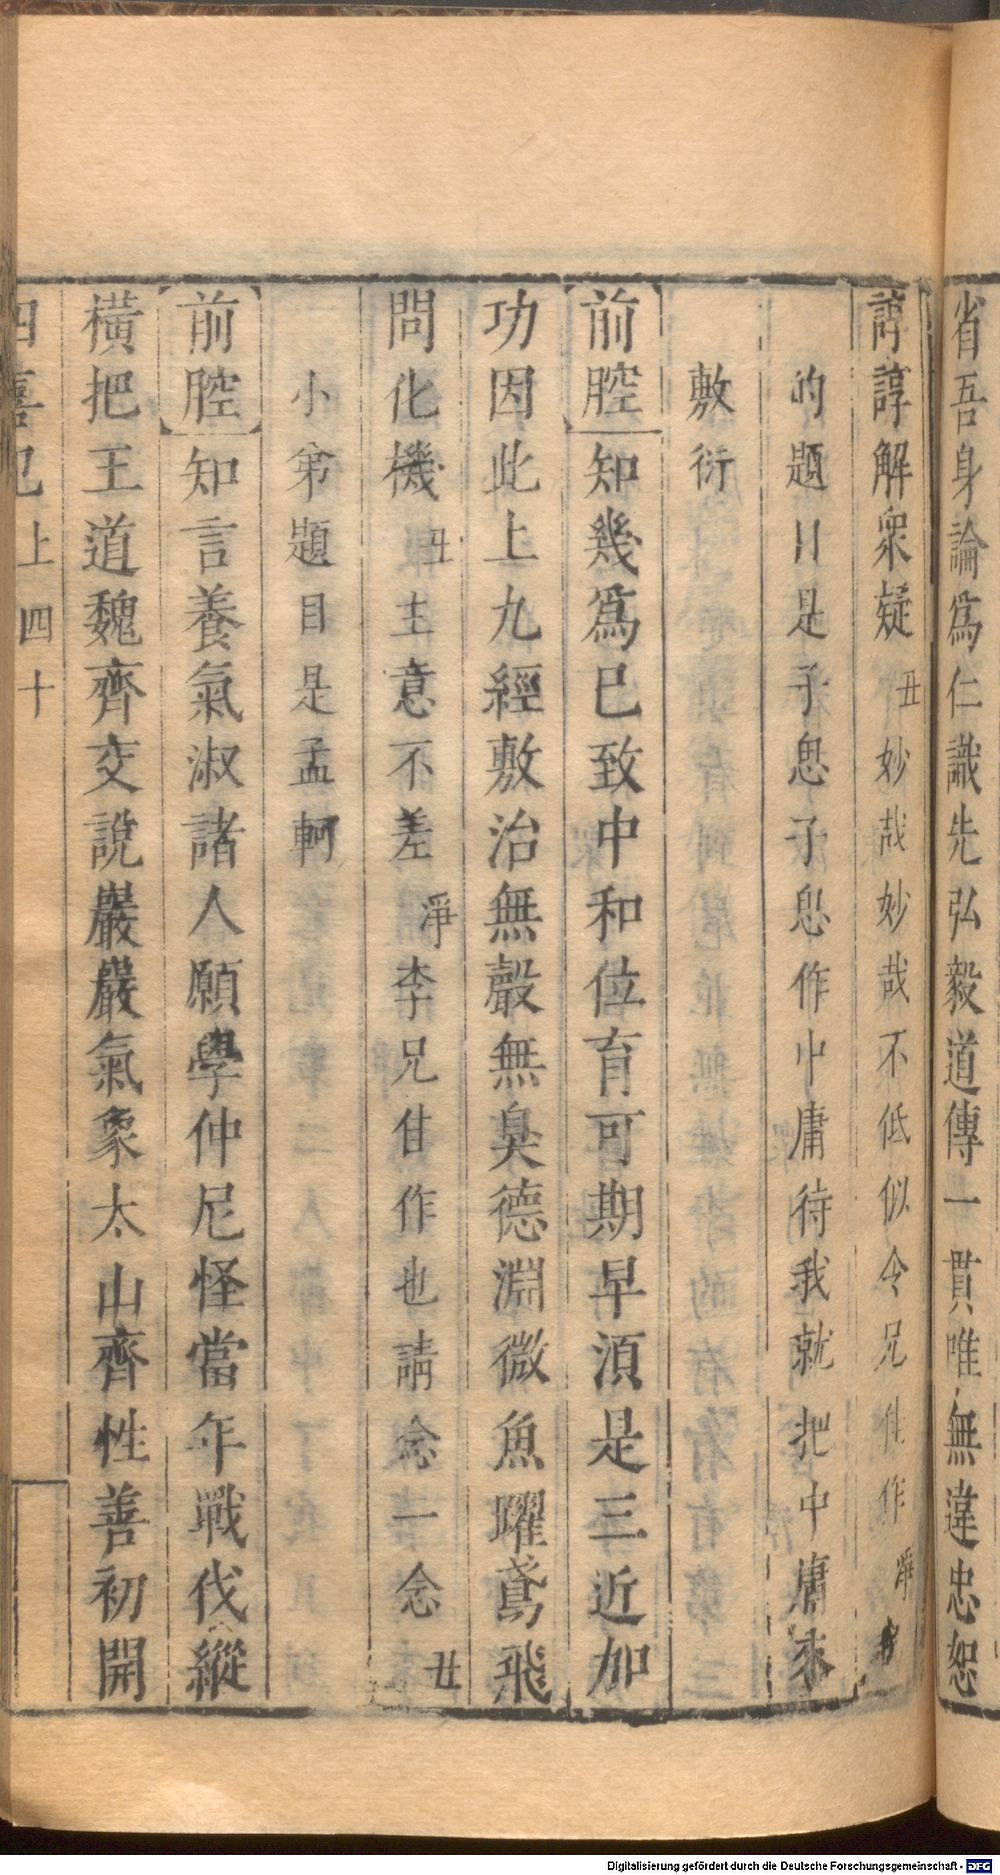 省吾身論為仁識先弘毅道傳一貫唯無違忠恕
諄諄解衆疑丑妙哉妙哉不低似令兄佳作淨
的題目是子思子思作中庸待我就把中庸來
敷衍
前腔知幾為已致中和位育可期早須是三近加
功因此上九經敷治無聲無臭德淵微魚躍鳶飛
問化機丑主意不差淨李兄佳作也請念一念丑
小弟題目是孟軻
前腔知言養氣淑諸人願學仲尼怪當年戰伐縱
橫把王道魏齊交說巖巖氣象太山齊性善初開
四喜記上四十
Digitalisierung gefördert durch die Deutsche Forschungsgemeinschaft - DFG